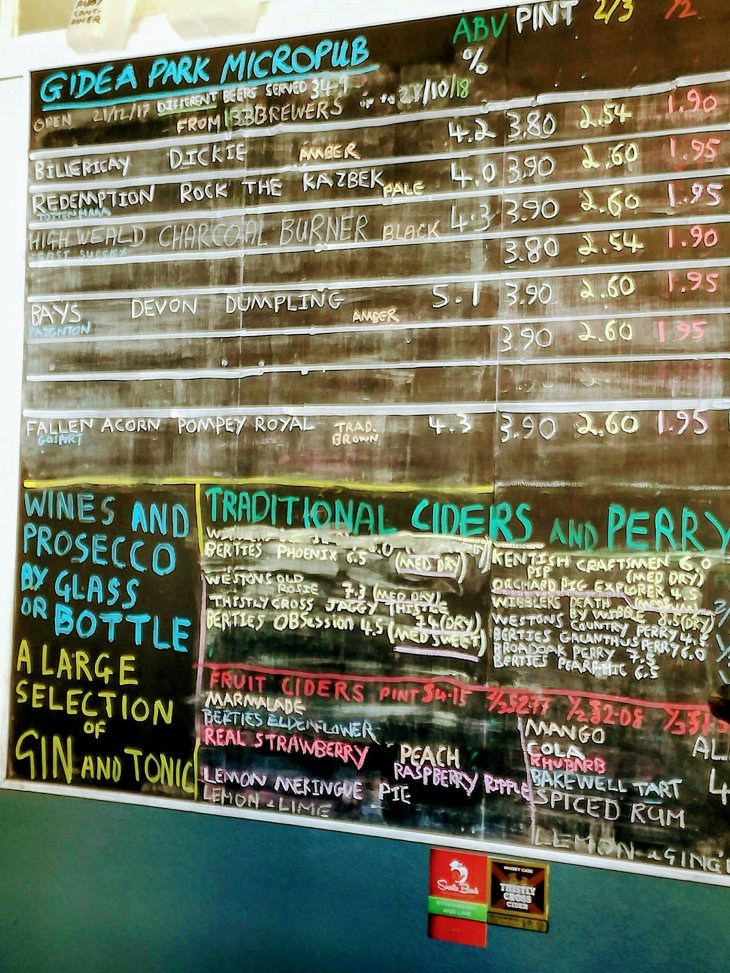 ABV PINT 2/3 1/2
GIDEA PARK MICROPUB %
OPEN 21/12/17 DIFFERENT BEERS SERVED 349
FROM 133 BREWERS UP TO 28/10/18
4.2 3.80 2.54 1.90
BILLERICAY DICKIE AMBER
4.0 3.90 2.60 1.95
REDEMPTION ROCK THE KAZBEK PALE
TOTTENHAM
4.3 3.90 2.60 1.95
HIGH WEALD CHARCOAL BURNER BLACK
EAST SUSSEX
3.80 2.54 1.90
BAYS DEVON DUMPLING AMBER 5.1 3.90 2.60 1.95
PAIGNTON
3.90 2.60 1.95
FALLEN ACORN POMPEY ROYAL TRAD. BROWN 4.3 3.90 2.60 1.95
GOSPORT
WINES AND
PROSECCO
BY GLASS
OR BOTTLE
A LARGE
SELECTION
OF
GIN AND TONIC
TRADITIONAL CIDERS AND PERRY
BERTIES PHOENIX 6.5 (MED DRY)
WESTONS OLD
ROSIE 7.3 (MED DRY)
THISTLY CROSS JAGGY THISTLE
7.4 (DRY)
BERTIES OBSESSION 4.5 (MED SWEET)
KENTISH CRAFTSMEN 6.0
(MED DRY)
ORCHARD PIG EXPLORER 4.5
(MEDIUM)
WIBBLERS DEATH BY WIBBLE 8.5 (DRY)
WESTONS COUNTRY PERRY 4.5
BERTIES GALANTHUS PERRY 6.0
BROADOAK PERRY 7.5
BERTIES PEARFFIC 6.5
FRUIT CIDERS PINT £4.15 2/3 £2.77 1/2 £2.08
MARMALADE
BERTIES ELDERFLOWER
REAL STRAWBERRY
PEACH
RASPBERRY RIPPLE
LEMON MERINGUE PIE
LEMON & LIME
MANGO
COLA
RHUBARB
BAKEWELL TART
SPICED RUM
LEMON & GINGE
AL
4
WHISKY CASK
THISTLY
CROSS
CIDER